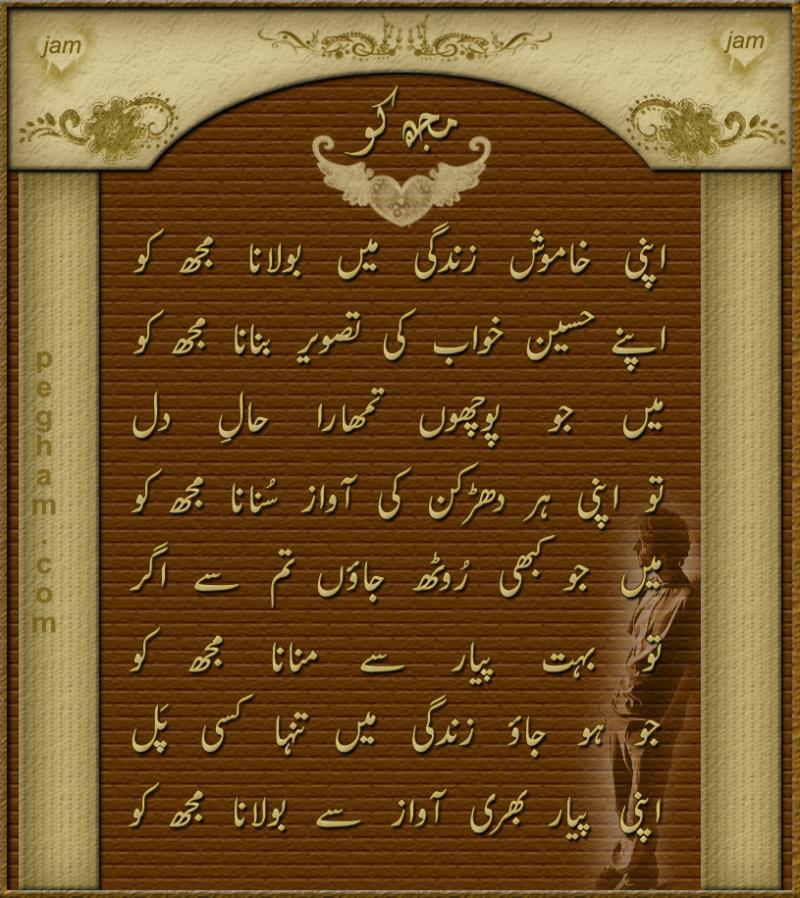 jam
jam
مجھ کو
اپنی خاموش زندگی میں بولانا مجھ کو
اپنے حسین خواب کی تصویر بنانا مجھ کو
میں جو پوچھوں تمھارا حالِ دل
تو اپنی ہر دھڑکن کی آواز سُنانا مجھ کو
میں جو کبھی رُوٹھ جاؤں تم سے اگر
تو بہت پیار سے منانا مجھ کو
جو ہو جاؤ زندگی میں تنہا کسی پَل
اپنی پیار بھری آواز سے بولانا مجھ کو
pegham.com